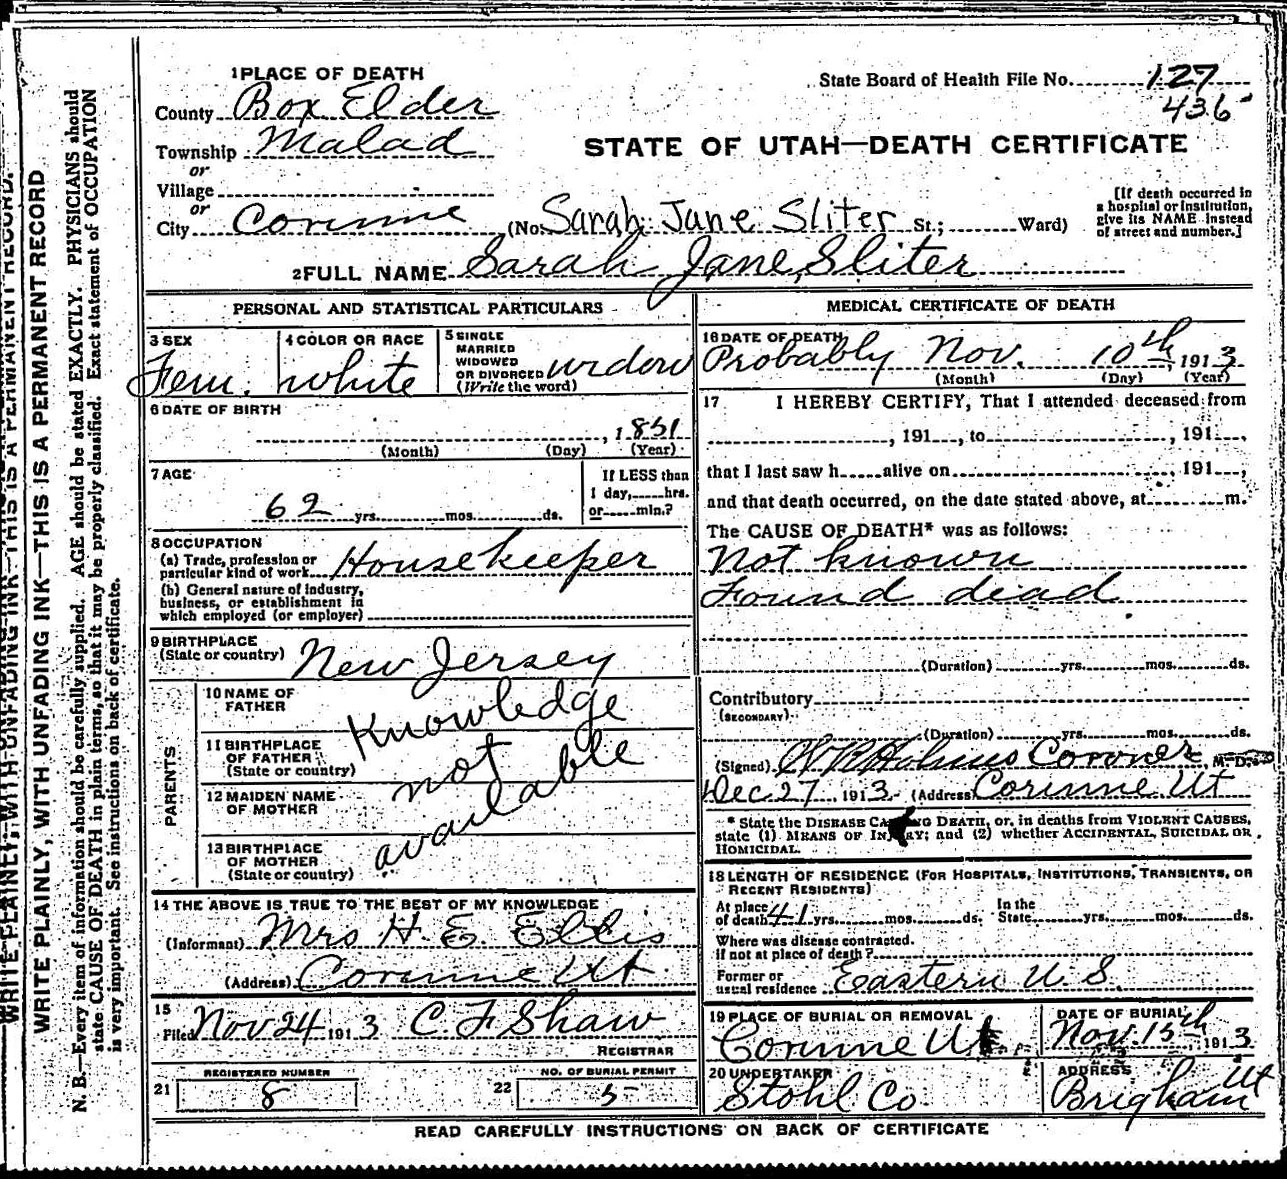 1 PLACE OF DEATH
County Box Elder
Township Malad
or
Village
or
City Corinne (No. Sarah Jane Sliter St.; Ward)
State Board of Health File No. 127
436
STATE OF UTAH—DEATH CERTIFICATE
[If death occurred in
a hospital or institution,
give its NAME instead
of street and number.]
2 FULL NAME Sarah Jane Sliter
PERSONAL AND STATISTICAL PARTICULARS
3 SEX
Fem.
4 COLOR OR RACE
white
5 SINGLE
MARRIED
WIDOWED
OR DIVORCED
(Write the word)
widow
6 DATE OF BIRTH
, 1851
(Month) (Day) (Year)
7 AGE
62 yrs. mos. ds.
If LESS than
1 day, hrs.
or min.?
8 OCCUPATION
(a) Trade, profession or
particular kind of work Housekeeper
(b) General nature of industry,
business, or establishment in
which employed (or employer)
9 BIRTHPLACE
(State or country) New Jersey
PARENTS
10 NAME OF
FATHER
11 BIRTHPLACE
OF FATHER
(State or country)
12 MAIDEN NAME
OF MOTHER
13 BIRTHPLACE
OF MOTHER
(State or country)
Knowledge
not
available
14 THE ABOVE IS TRUE TO THE BEST OF MY KNOWLEDGE
(Informant) Mrs H. E. Ellis
(Address) Corinne Ut
15
Filed Nov 24 1913 C. F. Shaw
REGISTRAR
21 REGISTERED NUMBER
8
22 NO. OF BURIAL PERMIT
5
MEDICAL CERTIFICATE OF DEATH
16 DATE OF DEATH
Probably Nov. 10th, 1913
(Month) (Day) (Year)
17 I HEREBY CERTIFY, That I attended deceased from
, 191 , to , 191 ,
that I last saw h alive on , 191 ,
and that death occurred, on the date stated above, at m.
The CAUSE OF DEATH* was as follows:
Not known
Found dead
(Duration) yrs. mos. ds.
Contributory
(SECONDARY)
(Duration) yrs. mos. ds.
(Signed) Holmes Coroner M. D.
Dec. 27, 1913 (Address) Corinne Ut
* State the DISEASE CAUSING DEATH, or, in deaths from VIOLENT CAUSES,
state (1) MEANS OF INJURY; and (2) whether ACCIDENTAL, SUICIDAL OR
HOMICIDAL.
18 LENGTH OF RESIDENCE (FOR HOSPITALS, INSTITUTIONS, TRANSIENTS, OR
RECENT RESIDENTS)
At place
of death 41 yrs. mos. ds.
In the
State yrs. mos. ds.
Where was disease contracted.
if not at place of death?
Former or
usual residence Eastern U. S.
19 PLACE OF BURIAL OR REMOVAL
Corinne Ut
DATE OF BURIAL
Nov. 15th, 1913
20 UNDERTAKER
Stohl Co.
ADDRESS
Brigham Ut
READ CAREFULLY INSTRUCTIONS ON BACK OF CERTIFICATE
WRITE PLAINLY, WITH UNFADING INK—THIS IS A PERMANENT RECORD.
WRITE PLAINLY, WITH UNFADING INK—THIS IS A PERMANENT RECORD
N. B.—Every item of information should be carefully supplied. AGE should be stated EXACTLY. PHYSICIANS should
state CAUSE OF DEATH in plain terms, so that it may be properly classified. Exact statement of OCCUPATION
is very important. See instructions on back of certificate.